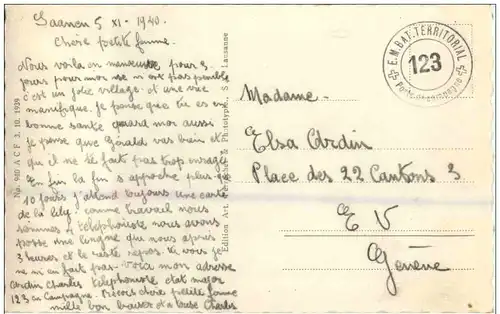 Saanen 5 XI. 1940.
Chère petite femme.
Nous voila en manœuvre pour 3
jours pour moi se n est pas penible
c est un jolie village et une vue
manifique. Je pense que tu es en
bonne sante quand moi aussi
je pense que Gérald vas bien et
qu il ne te fait pas trop enrager
En fin la fin s approche plus que
10 jours j attend toujours une carte
de la Lily. comme travail nous
sommes téléphoniste nous avons
posse une longue que nous apres
3 heures et le reste repos. tu vois je
ne m en fait pas. Voici mon adresse
Ardin Charles téléphoniste etat major
123 en Campagne. Recois chère petite femme
mille bon baiser et a Charles
No. 940 A C F 3. 10. 1939
Edition Art. & Phototypie, S. Lausanne
E. M. BAT. TERRITORIAL
123
Poste de campagne
Madame.
Elsa Ardin
Place des 22 Cantons 3
E V
Genève